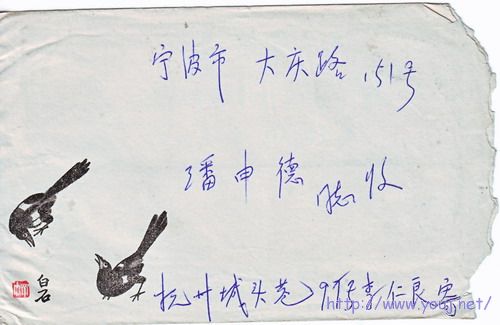 宁波市 大庆路 151号
潘申德 志收
白石
杭州城头巷 李仁良寄
http://www.youj.net/